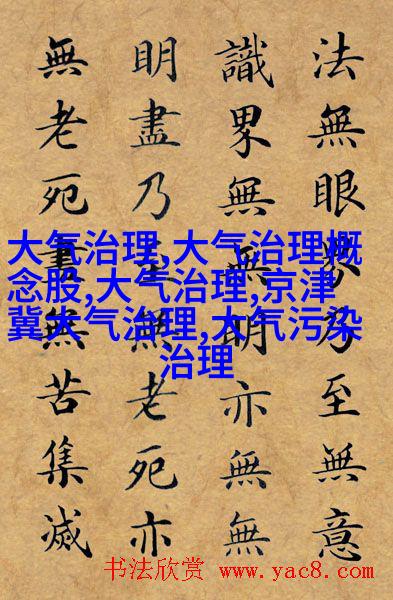 法無眼界乃至無意
識界無無明亦無無
明盡乃至無老死亦
無老死盡無苦集滅
大气治理,大气治理概
念股,大气治理,京津
冀大气治理,大气污染
治理
书法欣赏 www.yac8.com